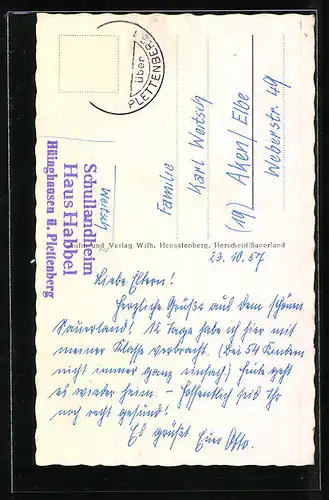 über
PLETTENBERG
Schullandheim
Haus Habbel
Hüinghausen ü. Plettenberg
Weitsch
Familie
Karl Weitsch
(19) Aken/Elbe
Weberstr. 49
und Verlag Wilh. Hengstenberg, Herscheid/Sauerland
23.10.57
Liebe Eltern!
Herzliche Grüße aus dem schönen
Sauerland! 12 Tage habe ich hier mit
meiner Klasse verbracht. (Bei 54 Kindern
nicht immer ganz einfach) Heute geht
es wieder heim. – Hoffentlich seid Ihr
noch recht gesund!
Es grüßt Euer Otto.